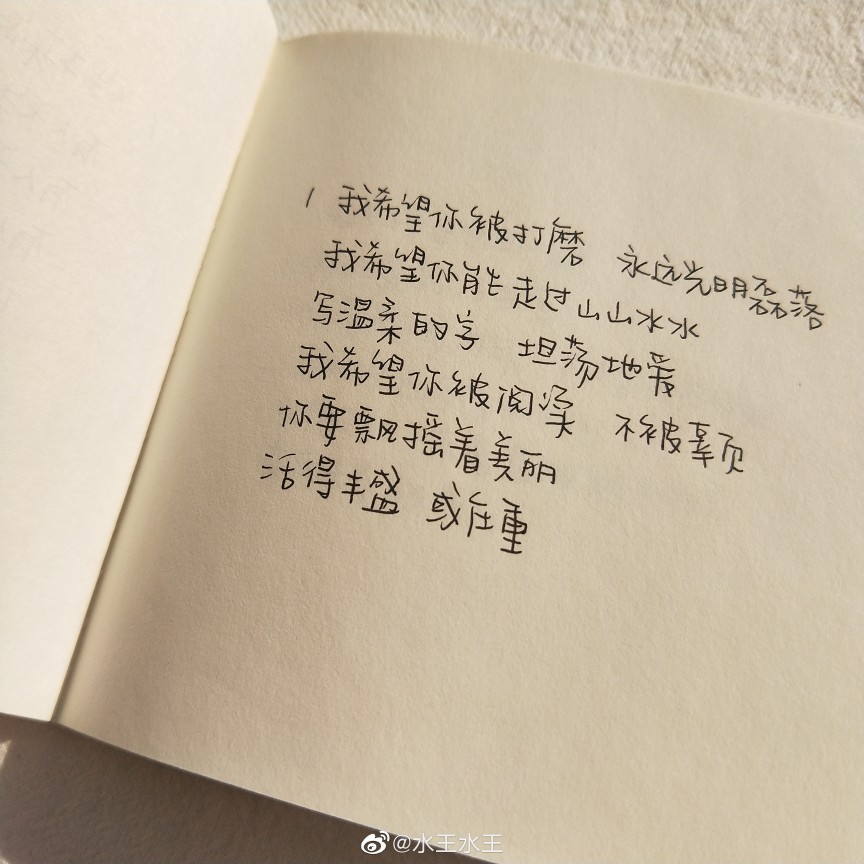 1 我希望你被打磨 永远光明磊落
我希望你能走过山山水水
写温柔的字 坦荡地爱
我希望你被阅读 不被辜负
你要飘摇着美丽
活得丰盛 或庄重
@水王水王